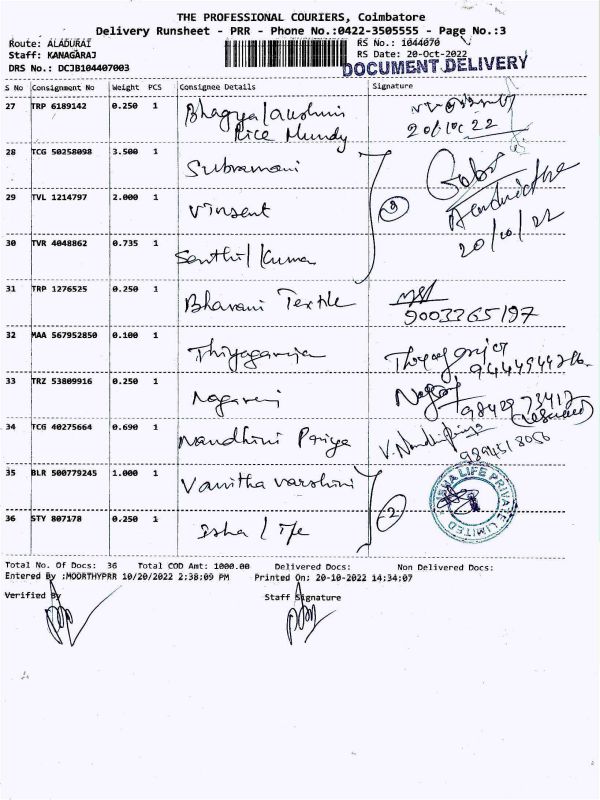 THE PROFESSIONAL COURIERS, Coimbatore
Delivery Runsheet - PRR - Phone No.:0422-3505555 - Page No.:3
Route: ALADURAI
Staff: KANAGARAJ
DRS No.: DCJB104407003
RS No.: 1044070
RS Date: 20-Oct-2022
DOCUMENT DELIVERY
S No Consignment No Weight PCS Consignee Details Signature
27 TRP 6189142 0.250 1 Bhagyalakshmi
Rice Mundy
20/10/22
28 TCG 50258098 3.500 1 Subramani
29 TVL 1214797 2.000 1 Vinsent
3
20/10/22
30 TVR 4048862 0.735 1 Senthil Kumar
31 TRP 1276525 0.250 1 Bharani Textile
9003365197
32 MAA 567952850 0.100 1 Thiyagaraja
33 TRZ 53809916 0.250 1 Nagaraj
34 TCG 40275664 0.690 1 Nandhini Priya V. Nandhinipriya
35 BLR 500779245 1.000 1 Vanitha varshini
2
ISHA LIFE PRIVATE LIMITED
36 STY 807178 0.250 1 Isha Life
Total No. Of Docs: 36 Total COD Amt: 1000.00 Delivered Docs: Non Delivered Docs:
Entered By :MOORTHYPRR 10/20/2022 2:38:09 PM Printed On: 20-10-2022 14:34:07
Verified By Staff Signature